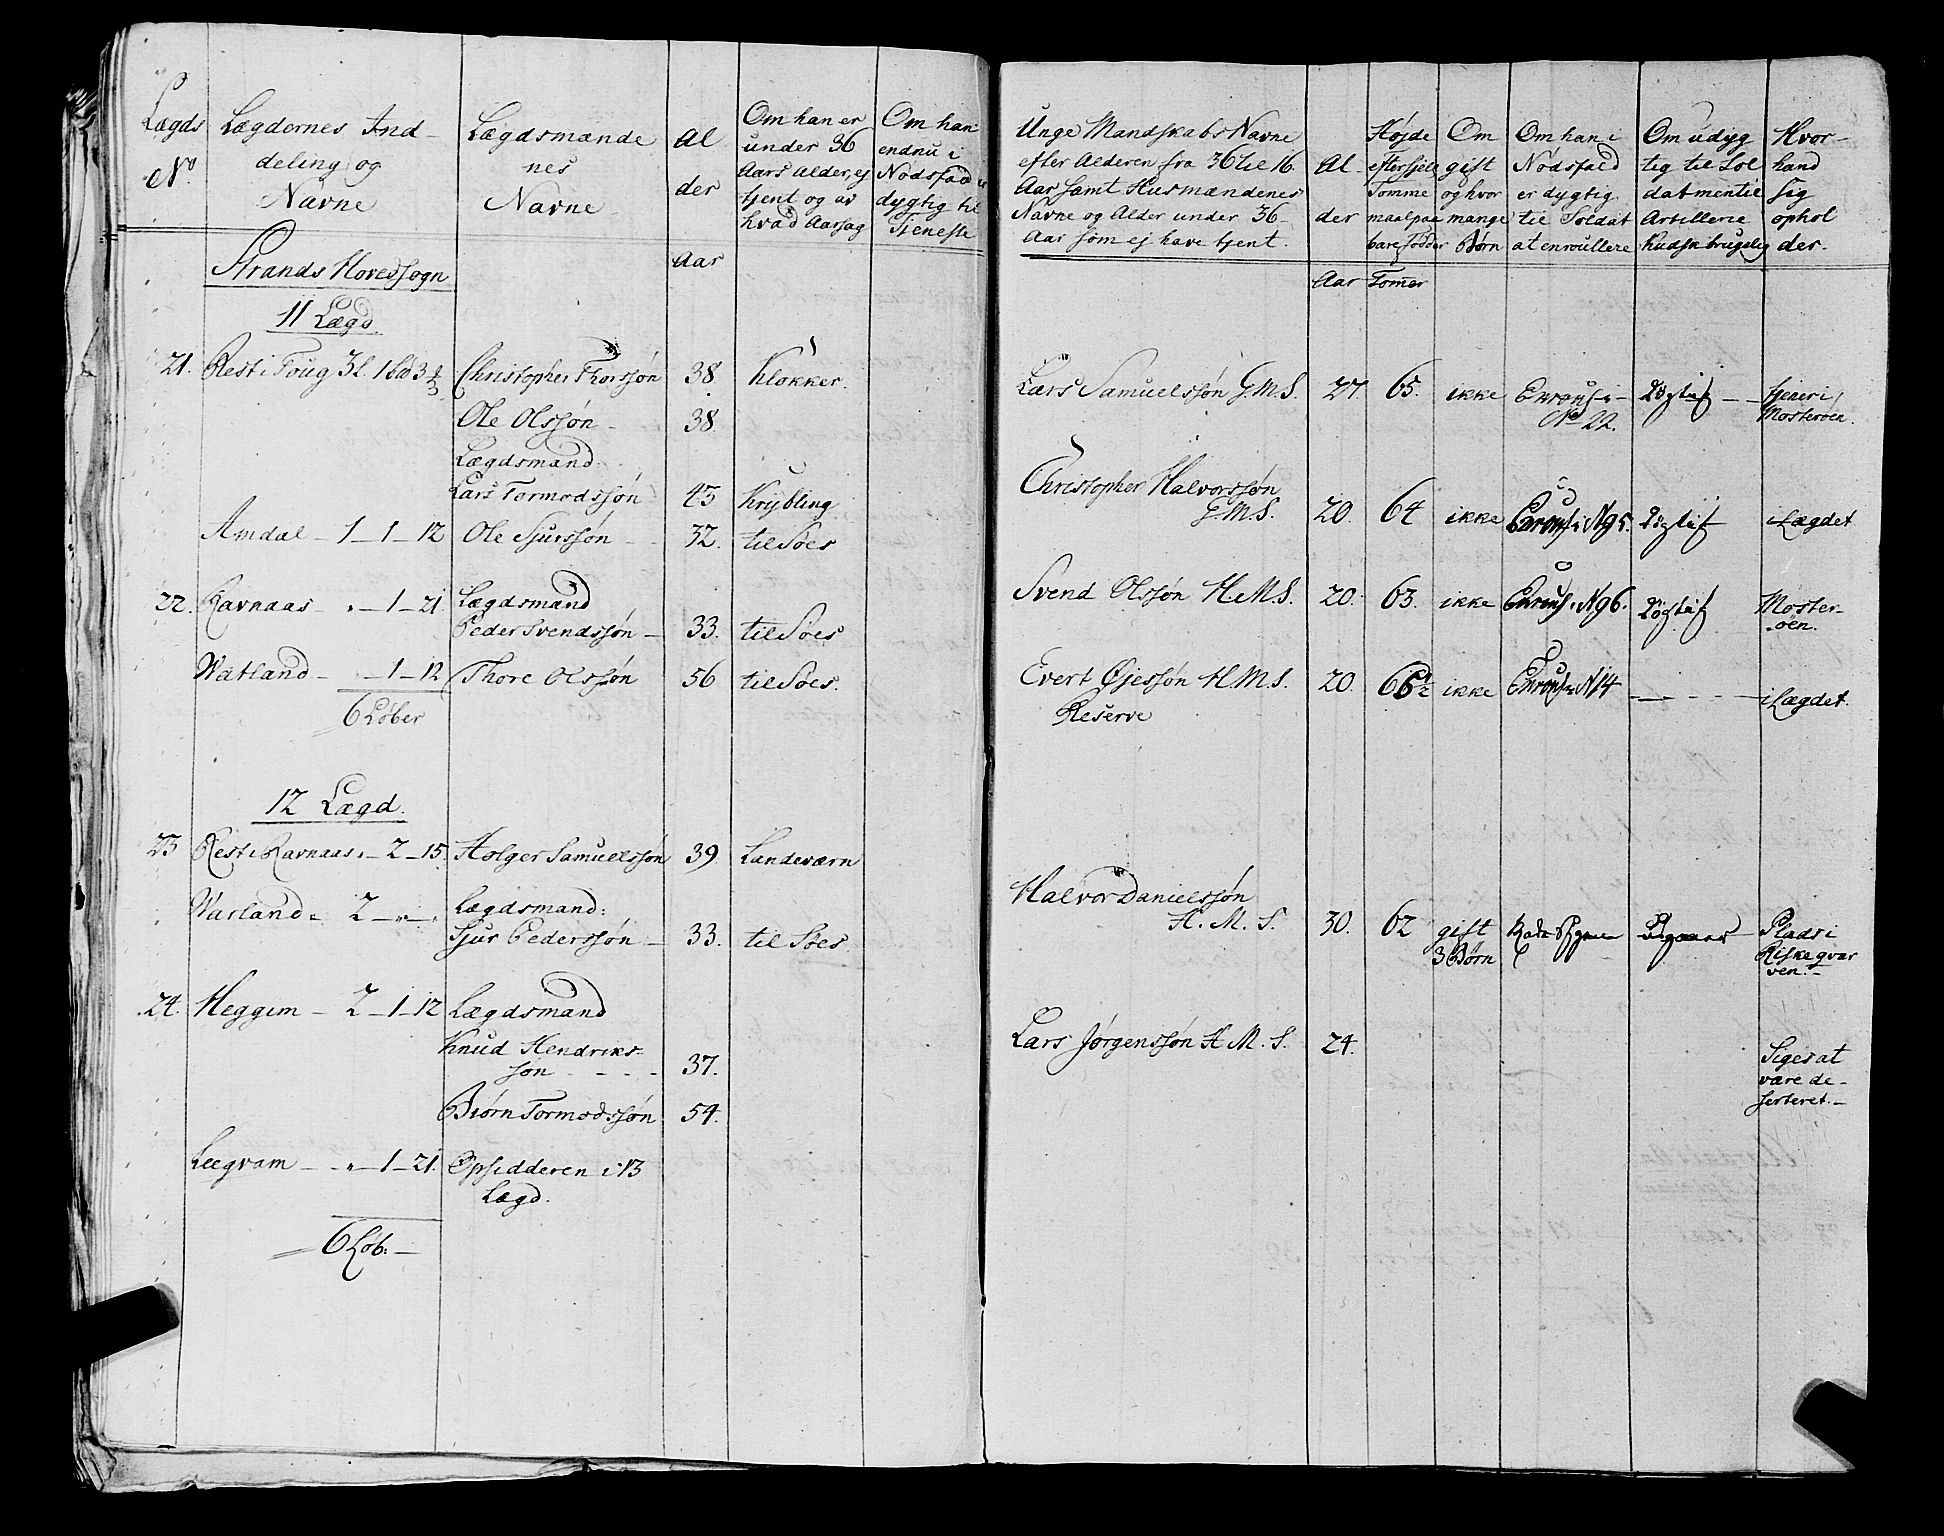 Lægds
No.
Lægdernes Ind-
deling og
Navne
Lægdsmænde
nes
Navne
Al
der
Om han er
under 36
Aars Alder, ej
tjent og av
hvad Aarsag
Om han
endnu i
Nødsfald er
dygtig til
Tjeneste
Aar
Strands Hovedsogn
11 Lægd.
21. Rest i Toug 3 L. 1 bd 3 Christopher Thorssøn 38. Klokker.
Ole Olssøn - 38.
Lægdsmand:
Lars Tormodssøn 43 Krybling
Amdal - 1 - 1 - 12 Ole Sjurssøn - - 32. til Søes
22. Ravnaas - " - 1 - 21. Lægdsmand
Peder Svendssøn - 33. til Søes.
Watland - - 1 - 12 Thore Olssøn 56 til Søes.
6 Løber
12 Lægd.
23 Rest i Ravnaas " - 2 - 15. Holger Samuelssøn 39. Landeværn
Warland - 2 - " - " Lægdsmand:
Sjur Pederssøn - 33. til Søes.
24. Heggem - 2 - 1 - 12 Lægdsmand
Knud Hendriks-
søn - - - - 37.
Biørn Tormodssøn. 54.
Leegvam - - " - 1 - 21. Opsidderen i 13
Lægd.
6 Løb: -
Unge Mandskabs Navne
efter Alderen fra 36 til 16
Aar samt Husmændenes
Navne og Alder under 36
Aar som ej have tjent.
Al-
der
Højde
efter sjell
Tomme
maal paa
bare fødder
Om
gift
og hvor
mange
Børn
Om han i
Nødsfald
er dygtig
til Soldat
at enroullere
Om udyg
tig til Sol
dat men til
Artillerie
kudsk brugelig
Hvor-
hand
sig
ophol
der.
Aar Tomer
Lars Samuelssøn G.M.S. 27. 65. ikke Enroul. i - - tjener i
No 22. Mosterøen.
Christopher Halvorssøn
G.M.S. 20. 64 ikke Enroul. i N 95. i Lægdet
Svend Olssøn H.M.S. 20. 63. ikke Enroul. i N 96. Moster-
øen.
Evert Øjessøn H.M.S. 20. 66½ ikke Enroul. i N 14 - - - - i Lægdet.
Reserve
Halvor Danielssøn
H.M.S. 30. 62 gift Plads i
3 Børn Riskegvar
ven. -
Lars Jørgenssøn H.M.S. 24.
Siges at
være de-
serteret. -